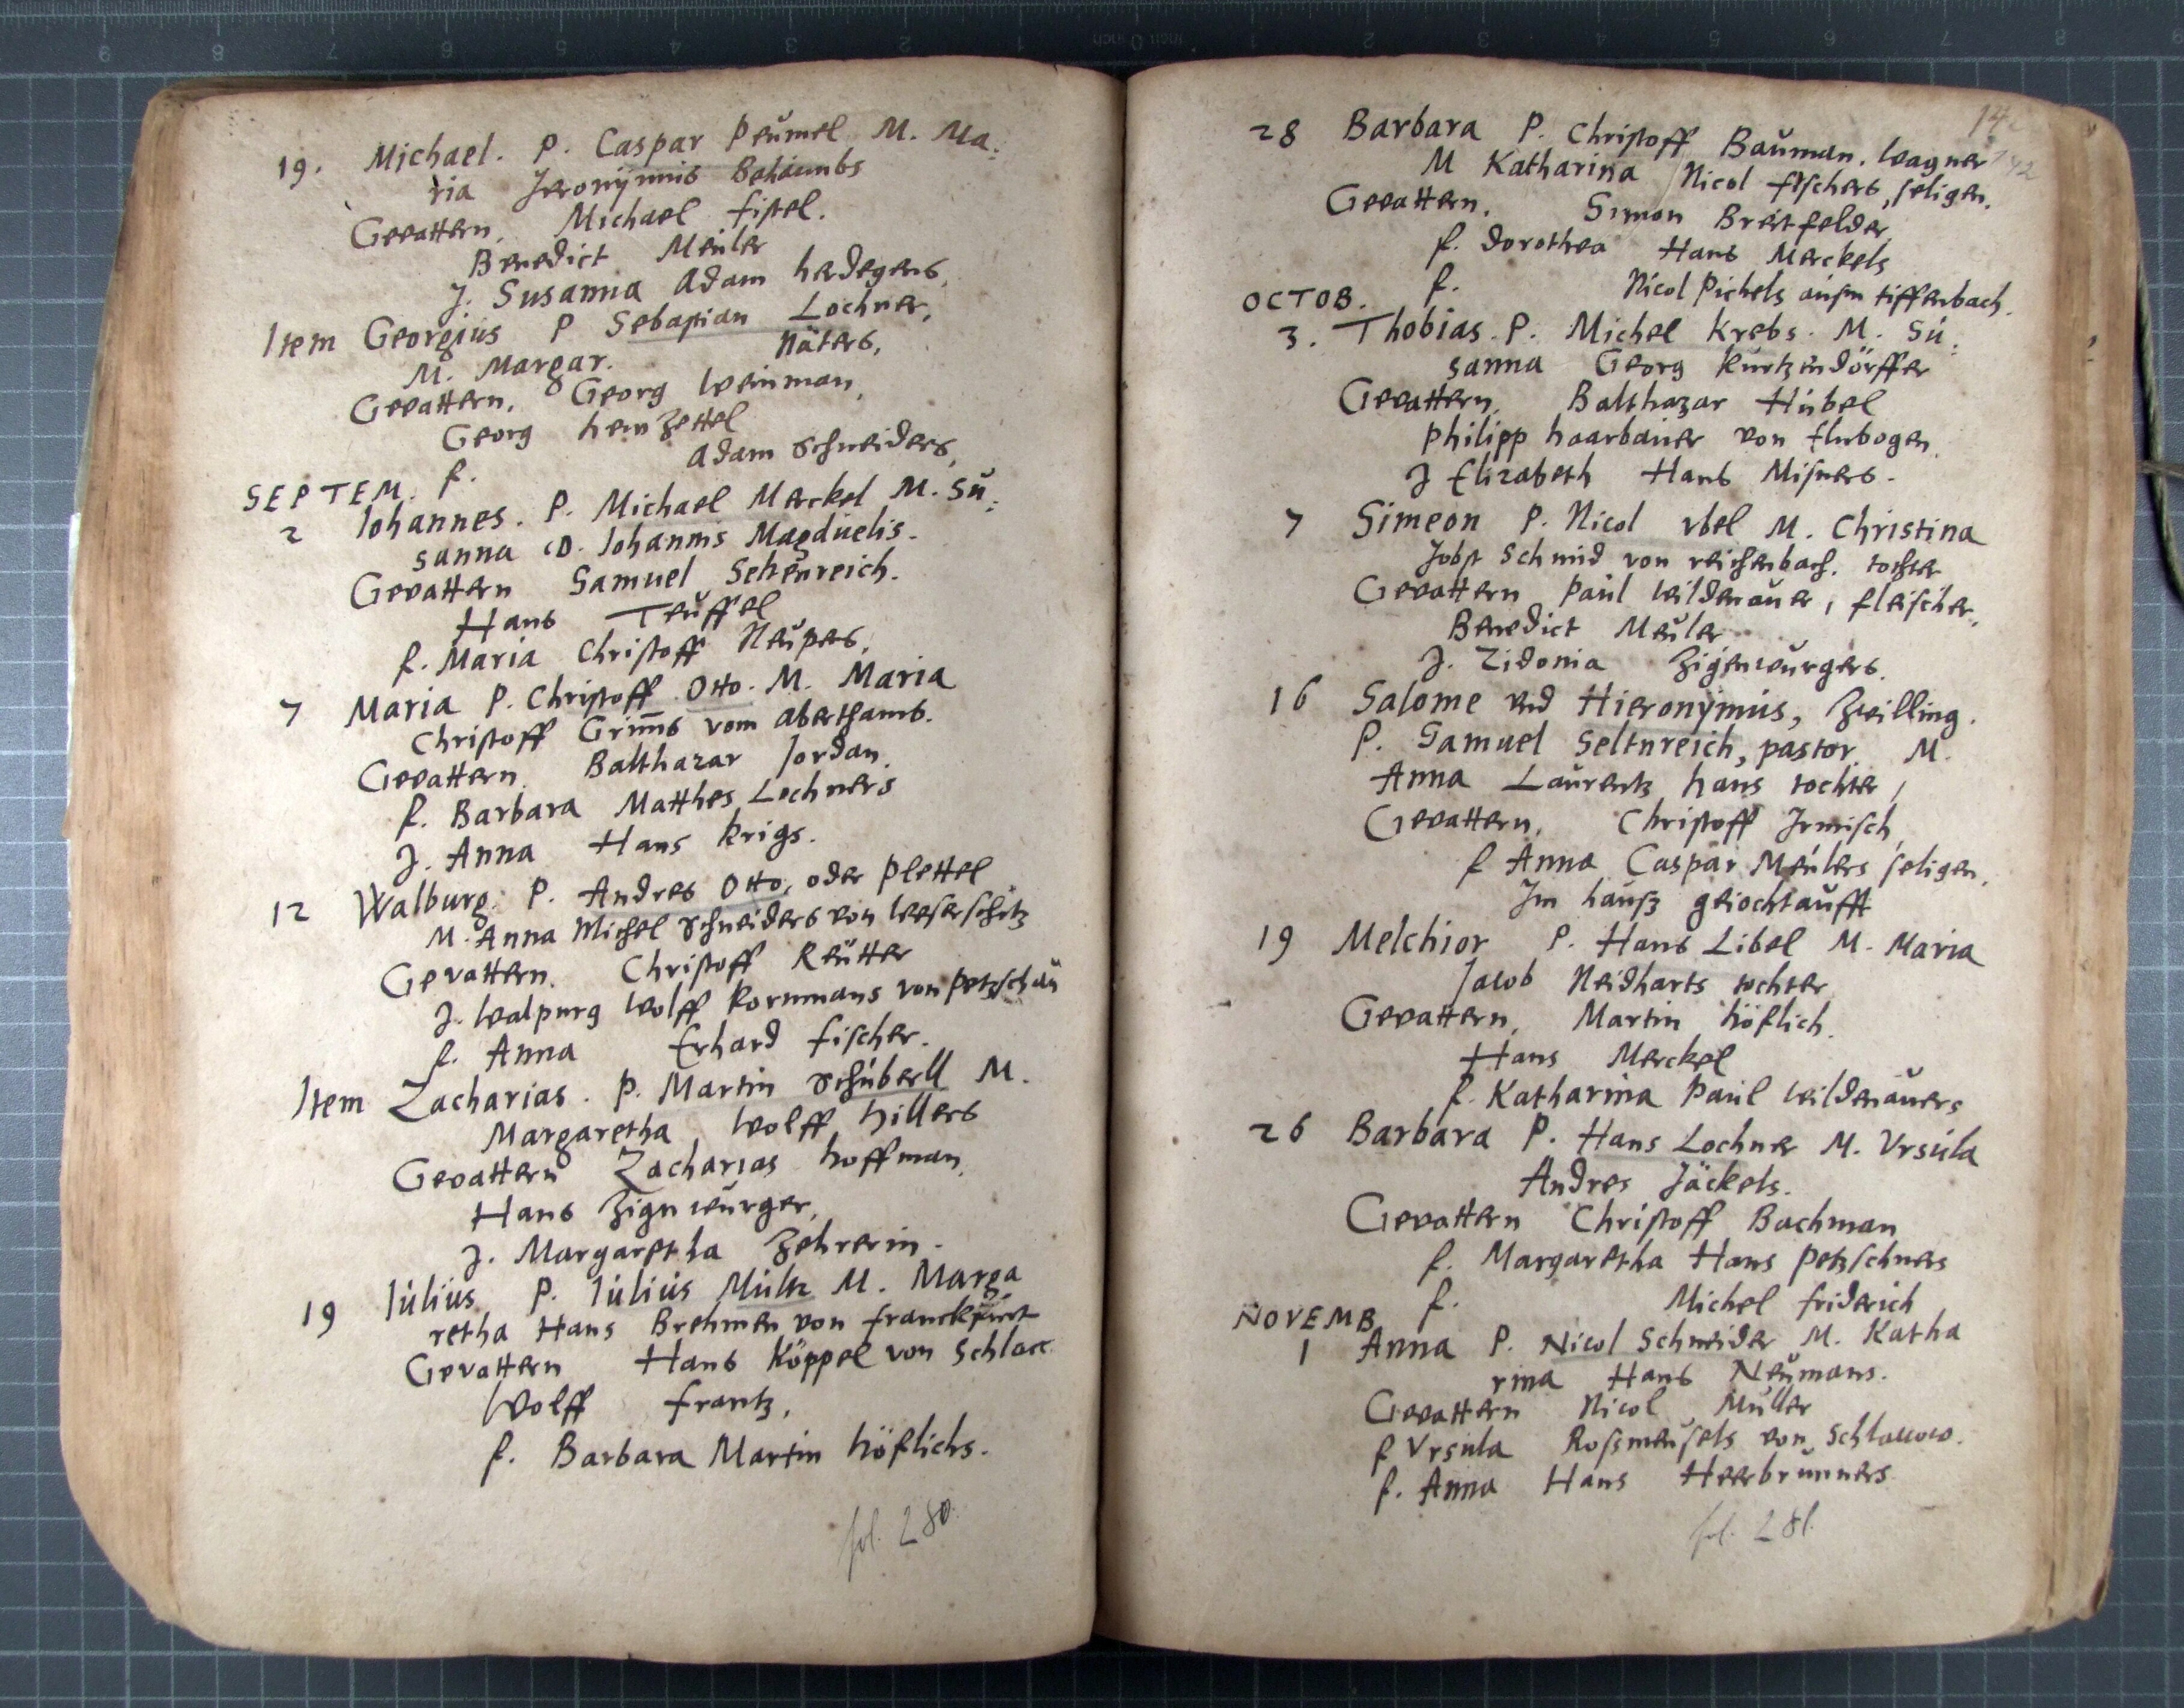 19. Michael. P. Caspar Peümel M. Ma:
ria Jeronÿmus Behaimbs
Gevattern, Michael Fistel.
Benedict Meüler
J. Susanna Adam Herdegens,
Item Georgius P Sebastian Lochner,
M. Margar. Näters,
Gevattern, Georg Weinman,
Georg Heinzettel
f. Adam Schneiders,
SEPTEM.
2 Iohannes. P. Michael Merckel M. Sü:
sanna D. Iohannis Magdüelis.
Gevattern Samuel Seltenreich.
Hans Teüffel
f. Maria Christoff Neüpers,
7 Maria P. Christoff Otto. M. Maria
Christoff Grim̄s vom Aberthams.
Gevattern, Balthazar Jordan,
f. Barbara Matthes Lochners
J. Anna Hans Krigs.
12 Walburg. P. Andres Otto, oder Plettel
M. Anna Michel Schneiders von Weserschitz
Gevattern. Christoff Reütter
J. Walpurg Wolff Kornmans von Petzschaü
f. Anna Erhard Fischer.
Item Zacharias. P. Martin Schüberll M.
Margaretha, Wolff Hillers
Gevattern Zacharias Hoffman,
Hans Zignwürger,
J. Margaretha Zehrerin.
19 Iülius P. Iülius Mültz M. Marga
retha Hans Brehmen von Franckfürt
Gevattern Hans Köppel von Schlacc
Wolff Frantz,
f. Barbara Martin Höflichs.
fol. 280.
142
28 Barbara P. Christoff Baüman, Wagner
M Katharina Nicol Fischers, seligen,
Gevattern, Simon Breitfelder
f. Dorothea Hans Merckels
f. Nicol Pichels aüsm Tiffenbach.
OCTOB.
3. Thobias. P. Michel Krebs. M. Sü:
sanna Georg Kürtzendörffer
Gevattern, Balthazar Hübel
Philipp Haarbaüer von Elnbogen,
J Elizabeth Hans Misners.
7 Simeon P. Nicol Vbel M. Christina
Jobst Schmid von Reichenbach. tochter
Gevattern Paül Wildenaüer, fleischer,
Benedict Meüler
J. Zidonia Zigenwürgers.
16 Salome und Hieronÿmüs, Zwilling.
P. Samuel Seltnreich, pastor M.
Anna Laürentz Hans tochter,
Gevattern, Christoff Irmisch,
f Anna Caspar Meülers seligen,
Im haüsz geiochtaufft
19 Melchior P. Hans Libel M. Maria
Jacob Neidharts tochter
Gevattern, Martin Höflich.
Hans Merckel
f. Katharina Paül Wildenaüers
26 Barbara P. Hans Lochner M. Vrsüla
Andres Jäckels.
Gevattern Christoff Bachman
f. Margaretha Hans Petzschners
f. Michel Friderich
NOVEMB
1 Anna P. Nicol Schneider M. Katha
rina Hans Neümans.
Gevattern Nicol Müller
f Vrsula Rossmeüsels von Schlaccow.
f. Anna Hans Heerbrünners.
fol. 281.